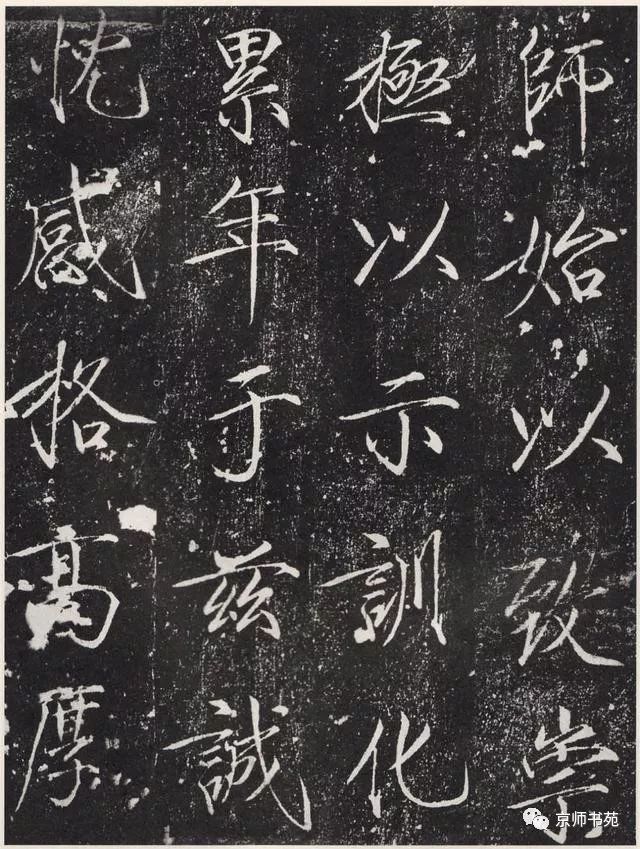 師始以致崇
極以示訓化
累年于兹誠
忱感格高厚
京师书苑